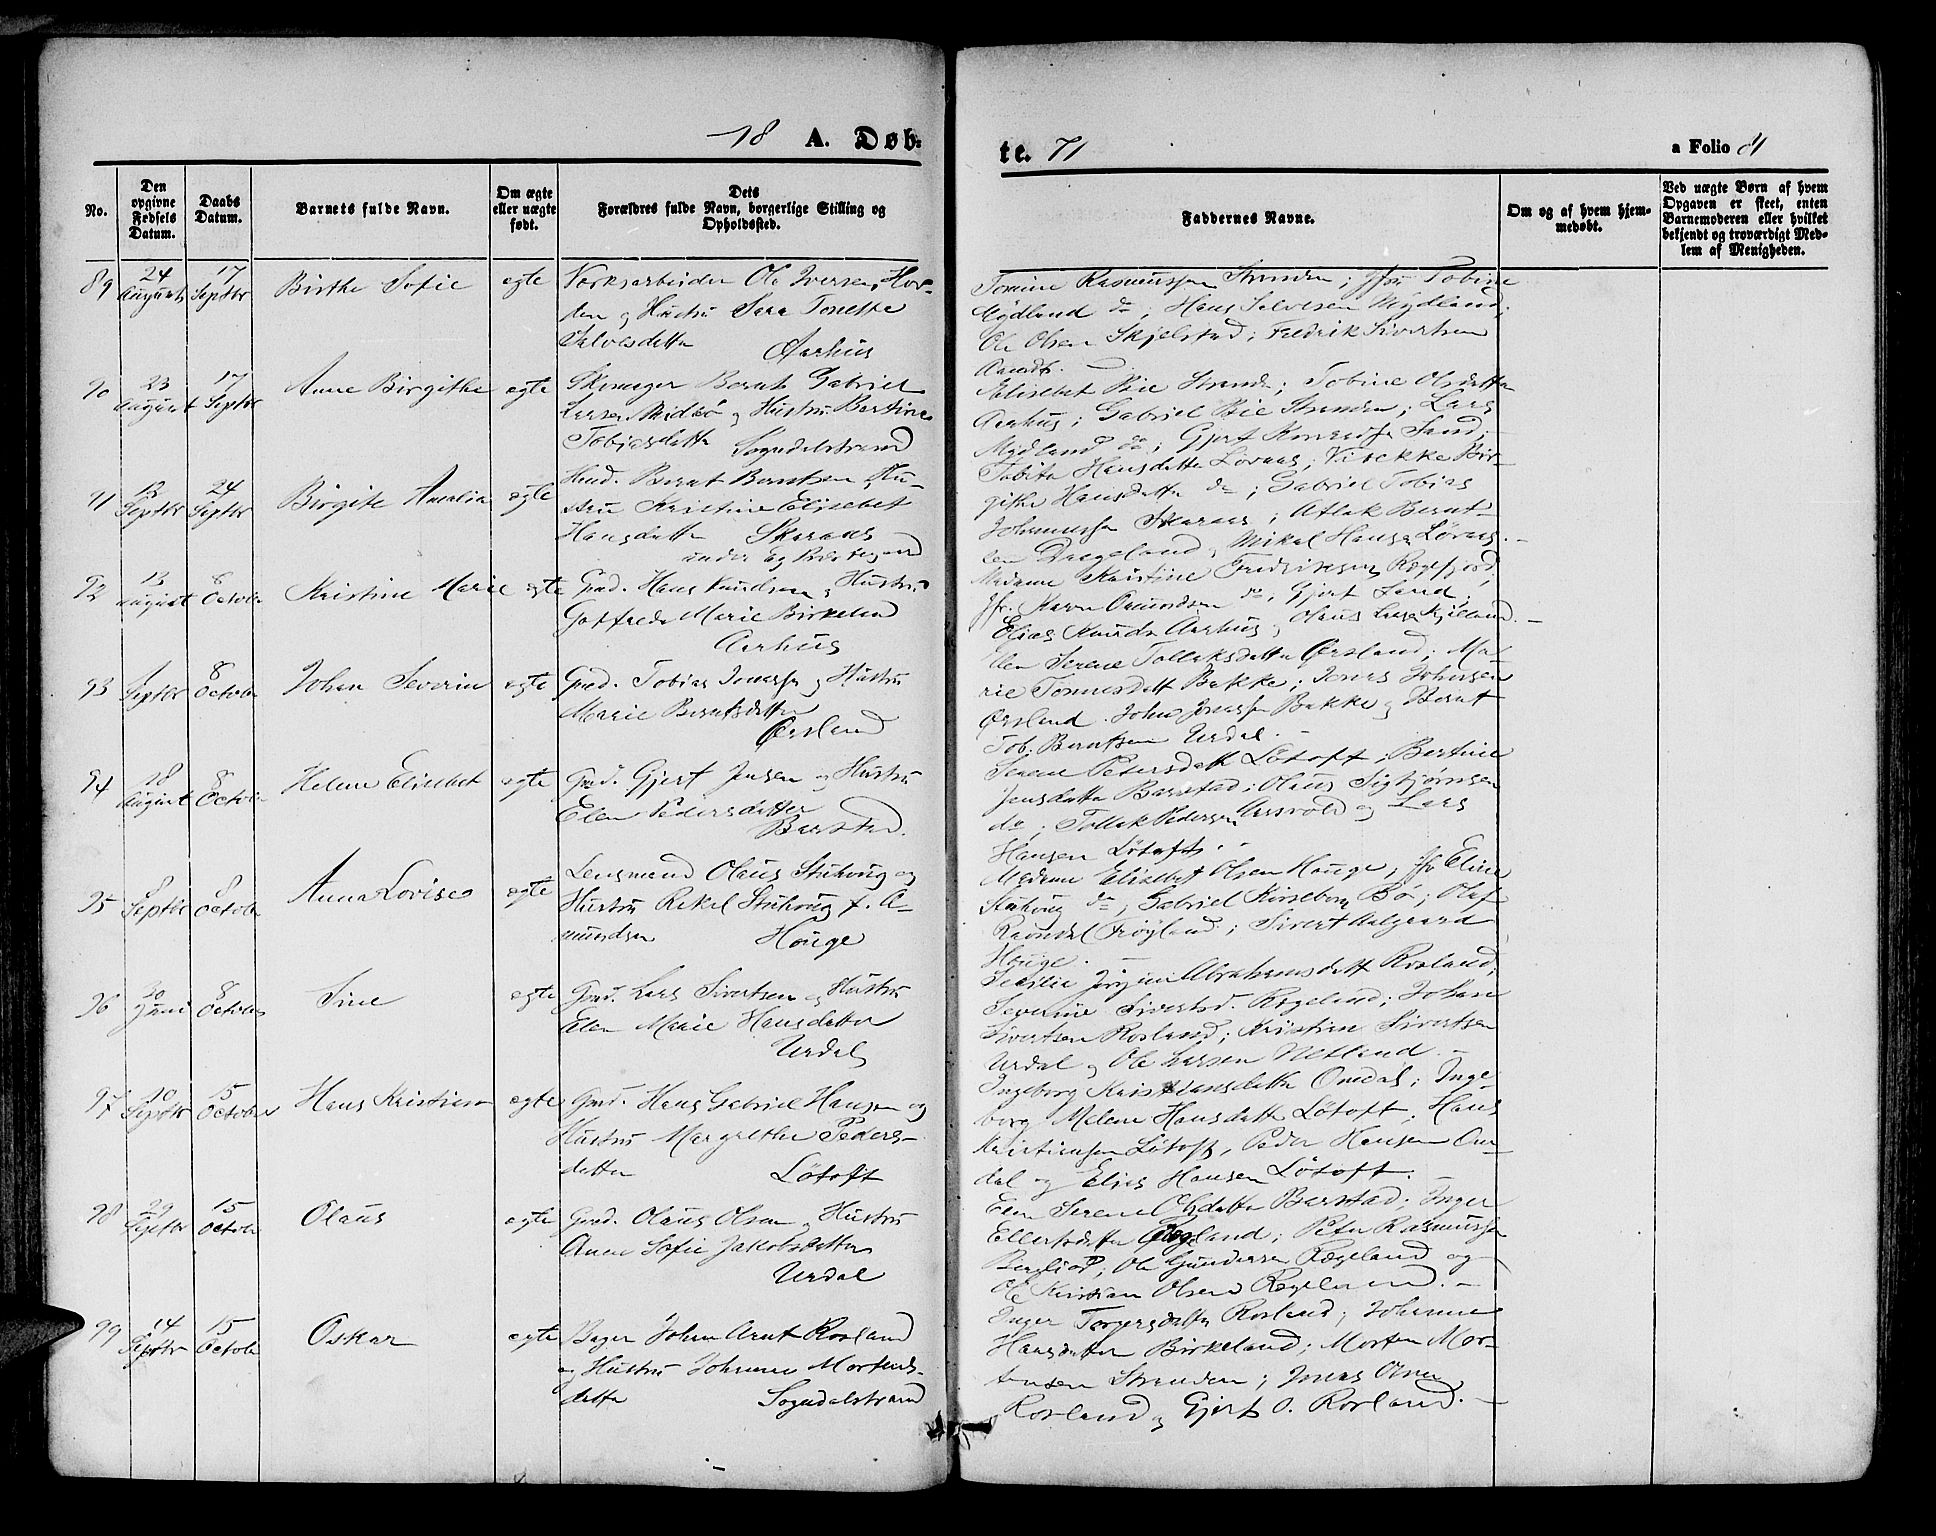 18 A. Døb-
te. 71 a Folio
No. Den opgivne Fødsels Datum. Daabs Datum. Barnets fulde Navn. Om ægte eller uægte født. Dets Forældres fulde Navn, borgerlige Stilling og Opholdssted.
Faddernes Navne. Om og af hvem hjemmedøbt. Ved uægte Børn af hvem Opgaven er skeet, enten Barnemoderen eller hvilket bekjendt og troværdigt Medlem af Menigheden.
89 24 August 17 Septbr Birthe Sofie egte Ole Iversen
og Hustru Sara Tonette
Salvesdatter Aarhus
Tomine Rasmussen Stranden; Jfru Tobine
Mydland do; Hans Salvesen Mydland;
Ole Olsen Skjelstad; Fredrik Sivertsen
90 23 August 17 Septbr Anne Birgithe egte Bernt Gabriel
Larsen Midbø og Hustru Bertine
Tobiasdatter Sogndalstrand
Elisebet Bie Stranden; Tobine Olsdatter
Aarhus; Gabriel Bie Stranden; Lars
Mydland do; Gjert Sand;
91 13 Septbr 24 Septbr Birgite Amalia egte Bernt Berntsen Hu-
stru Kristine Elisebet
Hansdatter Skaraas
under Eg Præstegaard
Tobita Hansdatter Løvaas; Bir-
gitte Hansdatter do; Gabriel Tobias
Johannessen Skaraas; Atlak Bernt-
sen Dragland, Mikal Hansen Løvaas.
92 13 august 8 Octobr Kristine Marie egte Gmd. Hans Knudsen og Hustru
Gotfreda Marie Birkeland
Aarhus
Madame Kristine Fredriksen Rægefjord;
Jfr. Karen Omundsen do; Gjert Sand;
Elias Knuds. Aarhus og Olaus Larsen Kjelland.
93 1 Septbr 8 Octobr Johan Severin egte Gmd. Tobias Jonassen og Hustru
Marie Berntsdatter
Ørsland
Serene Tollaksdatter Ørsland; Ma-
rie Tonnesdatt Bakke; Jonas Johnsen
Ørsland. John Jonassen Bakke og Bernt
Tob. Berntsen Urdal.
94 18 August 8 Octobr Helene Elisebet egte Gmd. Gjert Jensen og Hustru
Elen Pedersdatter
Barstad.
Serene Petersdatt Løtoft; Bertine
Jensdatter Barstad; Olaus Sigbjørnsen
do; Tollak Pedersen Aarsvold og Lars
Hansen Løtoft.
95 Septbr 8 Octobr Anna Lovise egte Lensmand Olaus Stuhoug og
Hustru Rakel Stuhoug f. A-
mundsen Houge
Madame Elisebet Olsen Hauge; Jfr Eline
Stuhoug do; Gabriel Bø; Olaf
Ravndal Frøyland; Sivert Aalgaard
Hauge.
96 30 Juni 8 Octobr Sine egte Gmd. Lars Sivertsen og Hustru
Elen Marie Hansdatter
Urdal
Jørgine Abrahamsdatt Rosland;
Severine Sivertsd. Rægeland; Johan
Sivertsen Rosland; Kristian Sivertsen
Urdal og Ole Larsen Netland.
97 10 Septbr 15 October Hans Kristian egte Gmd. Hans Gabriel Hansen og
Hustru Margrethe Peders-
datter Løtoft
Ingeborg Kristiansdatter Omdal; Inge-
borg Malene Hansdatt Løtoft; Hans
Kristiansen Løtoft, Peder Hansen Om-
dal og Elias Hansen Løtoft.
98 29 Septbr 15 Octobr Olaus egte Gmd. Olaus Olsen og Hustru
Anne Sofie Jakobsdatter
Urdal
Elen Serene Olsdatter Barstad; Inger
Ellertsdatter Rægland; Peter Rasmussen
Ole Gundersen Rægeland og
Ole Kristian Olsen Rægeland.
99 14 Septbr 15 Octobr Oskar egte Bager Johan Arnt Rosland
og Hustru Johanne Mortens-
datter Sogndalstrand
Inger Torgersdatter Rosland; Johanne
Hansdatter Birkeland; Morten Mor-
tensen Stranden; Jonas
Rosland og Gjert O. Rosland.